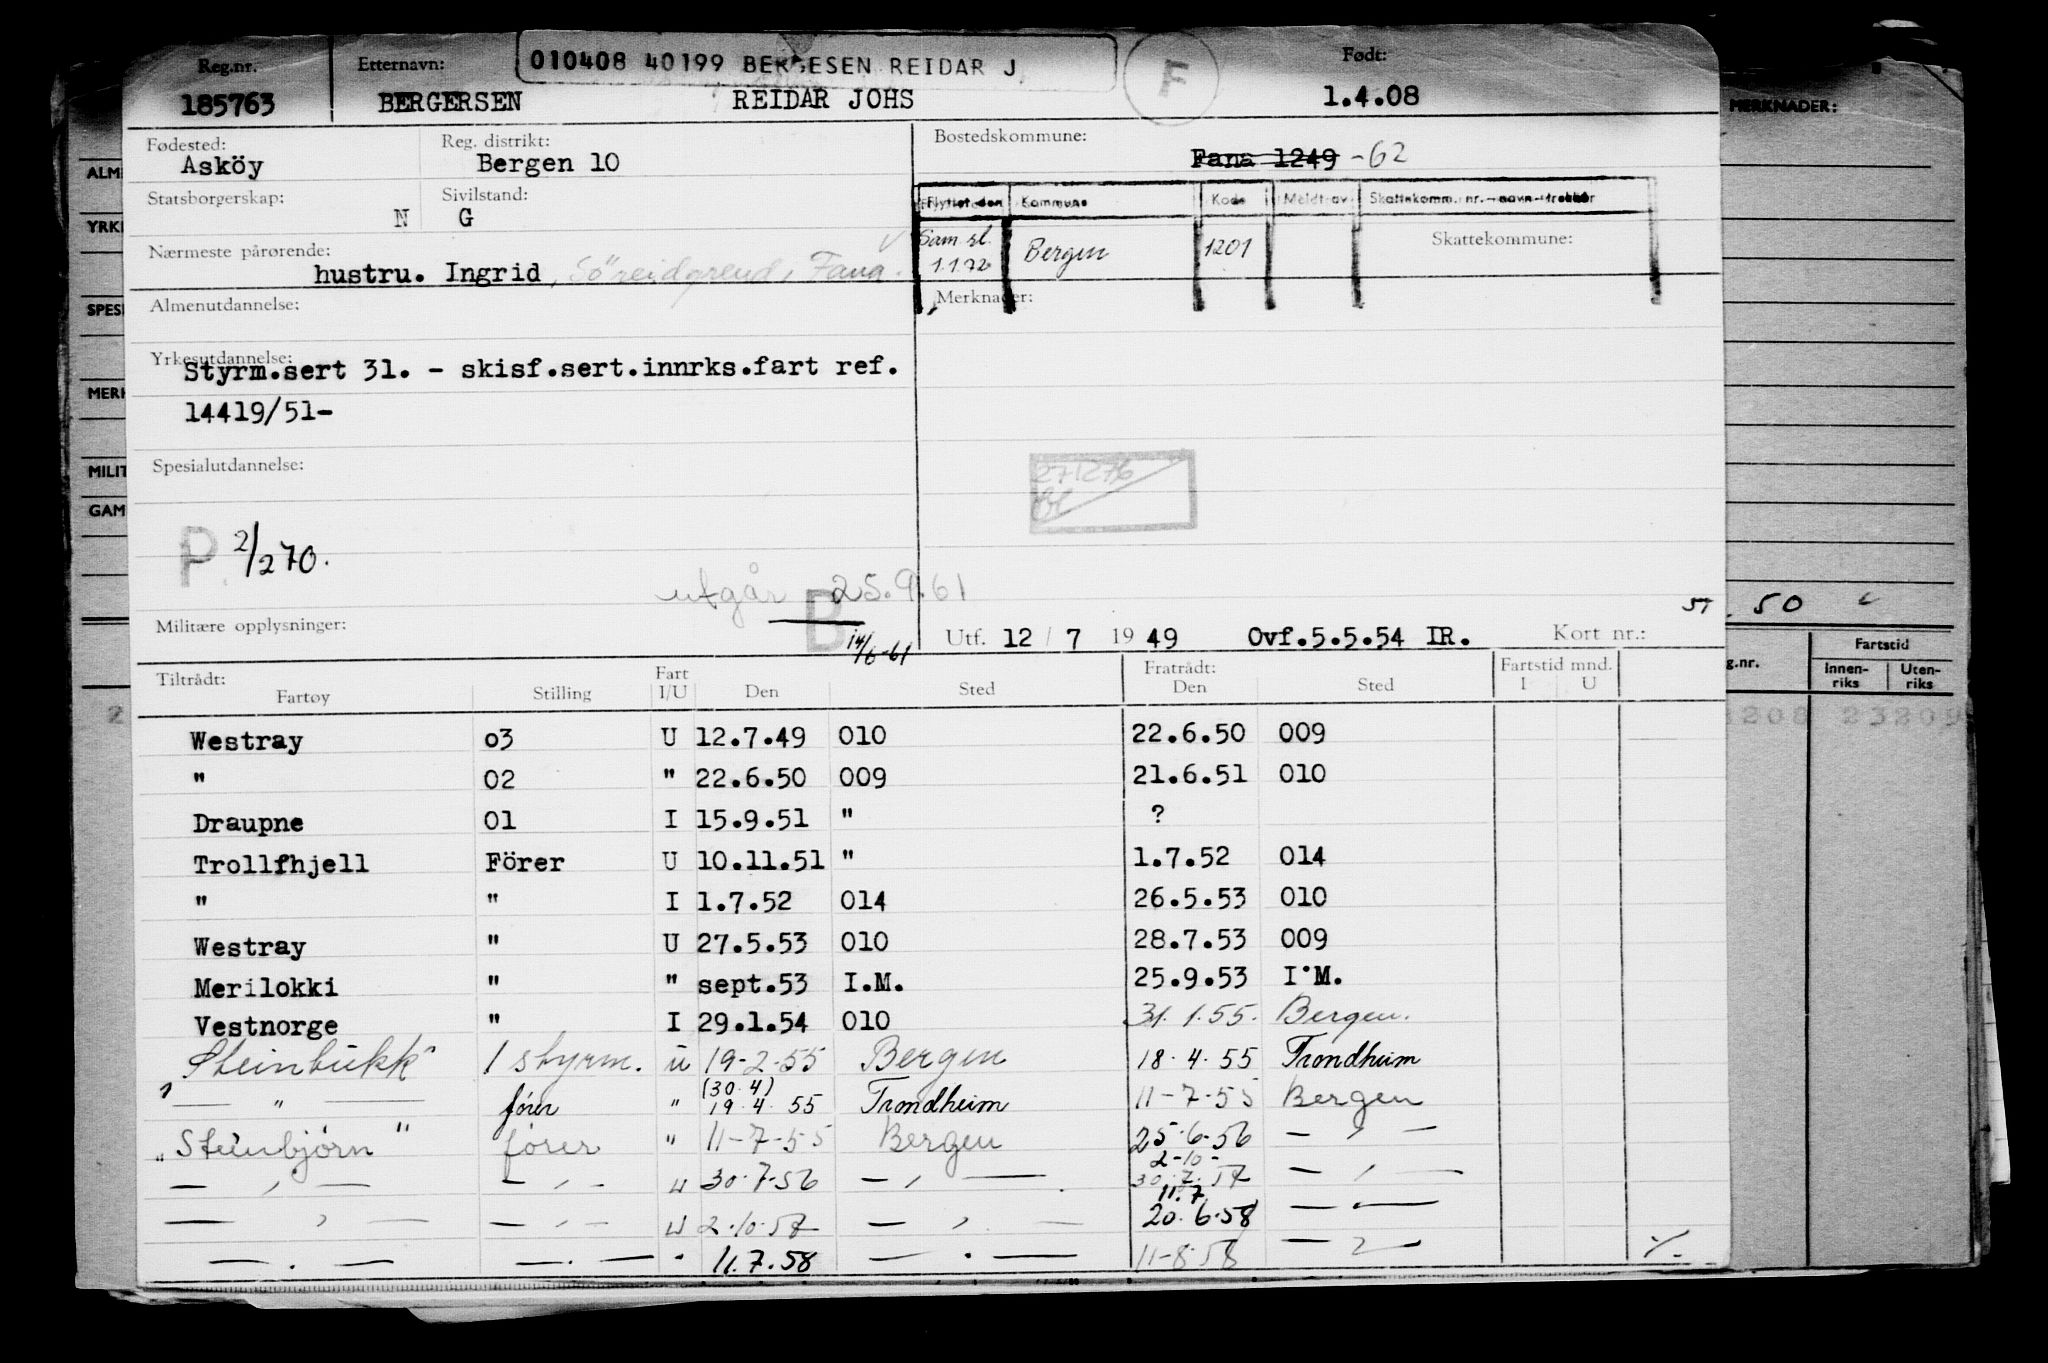 010408 40199 BERGESEN REIDAR J
F
Reg.nr. Etternavn: Født:
185763 BERGERSEN REIDAR JOHS 1.4.08
MERKNADER:
Fødested: Reg. distrikt: Bostedskommune:
Asköy Bergen 10 Fana 1249 -62
Statsborgerskap: Sivilstand:
N G
Flyttet den Kommune Kode Meldt av Skattekomm. nr. - navn - trekkår
Nærmeste pårørende: Skattekommune:
Sam sl. 1.1.72 Bergen 1201
hustru. Ingrid, Söreidgrend, Fana.
Almenutdannelse: Merknader:
Yrkesutdannelse:
Styrm.sert 31. - skisf.sert.innrks.fart ref.
14419/51-
Spesialutdannelse:
271276
P 2/270.
utgår B 25.9.61
14/6-61
Militære opplysninger:
Utf. 12 / 7 19 49 Ovf.5.5.54 IR. Kort nr.:
ALM
YRK
SPES
MERK
MILIT
GAM
50
g.nr. Fartstid
Innen-riks Uten-riks
1208 23209
Tiltrådt: Fart Fratrådt: Fartstid mnd.
Fartøy Stilling I/U Den Sted Den Sted I U
Westray o3 U 12.7.49 010 22.6.50 009
" 02 " 22.6.50 009 21.6.51 010
Draupne 01 I 15.9.51 " ?
Trollfhjell Förer U 10.11.51 " 1.7.52 014
" " I 1.7.52 014 26.5.53 010
Westray " U 27.5.53 010 28.7.53 009
Merilokki " " sept.53 I.M. 25.9.53 I.M.
Vestnorge " I 29.1.54 010 31.1.55. Bergen.
Steinbukk" 1 styrm. u 19-2-55 Bergen 18.4.55 Trondheim
— " — förer " (30.4) 19.4.55 Trondheim 11-7-55 Bergen
"Steinbjörn" förer " 11-7-55 Bergen 25.6-56 — " —
— " — — " — " 30.7-56 — " — 2-10- 30.7.57 — " —
— " — — " — " 2.10.57 — " — 11.7 20.6.58 — " —
— " — — " — " 11.7.58 — " — 11-8-58 — " — ./.